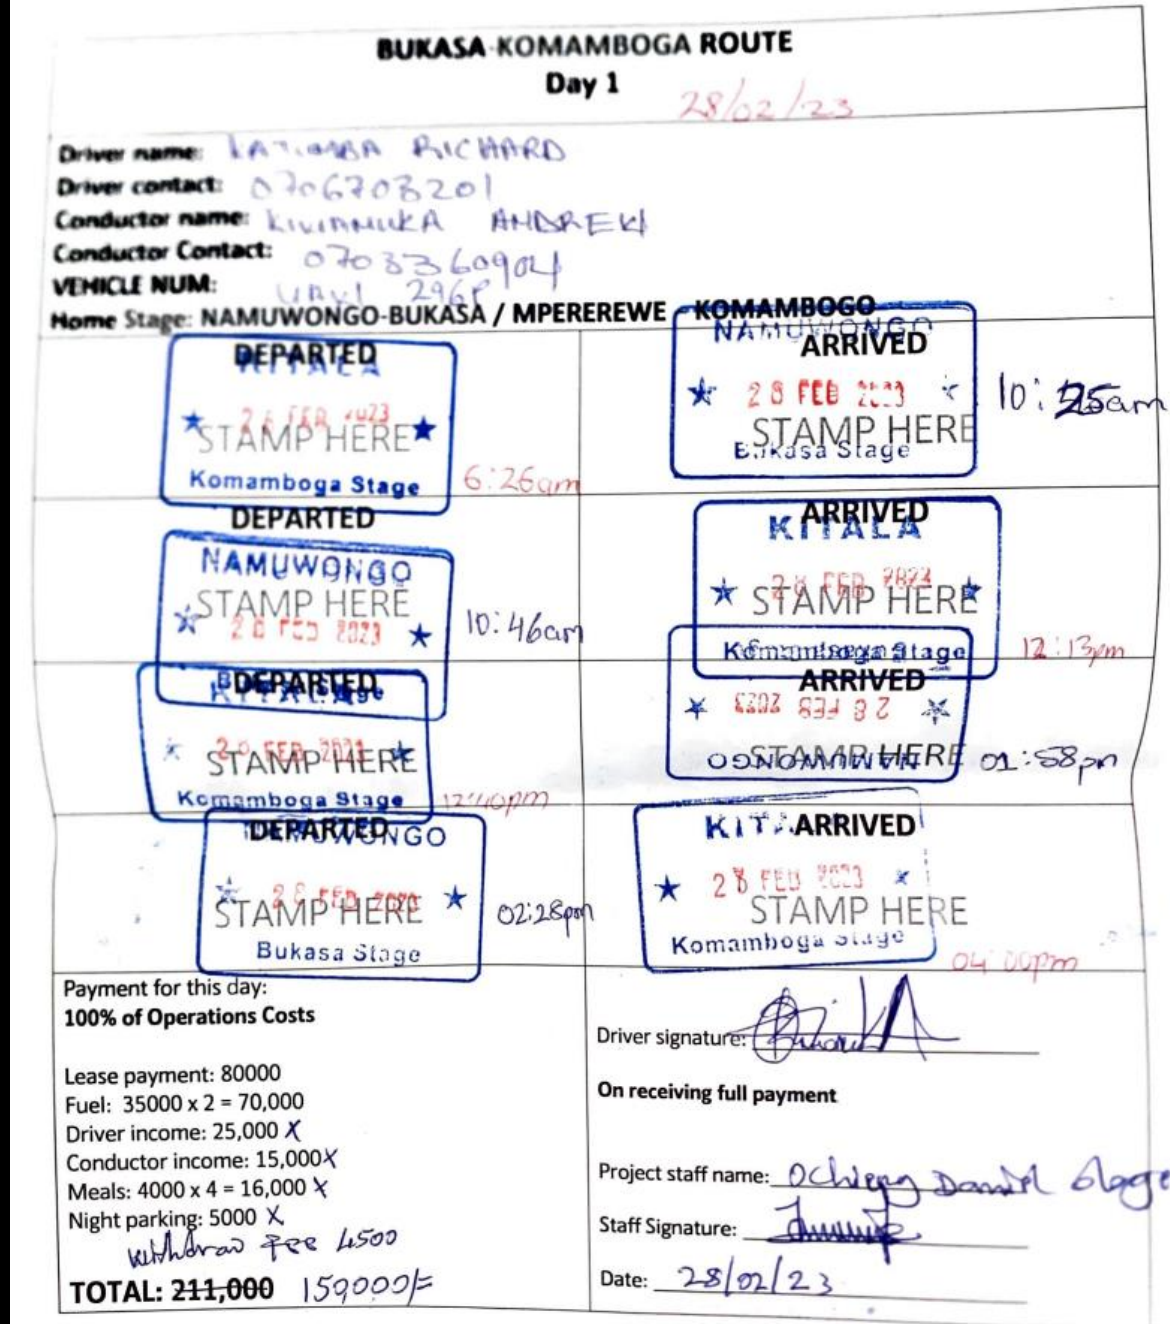 BUKASA-KOMAMBOGA ROUTE
Day 1
28/02/23
Driver name: KATIMBA RICHARD
Driver contact: 0706703201
Conductor name: KIVIANUKA ANDREW
Conductor Contact: 0703360904
VEHICLE NUM: 296P
Home Stage: NAMUWONGO-BUKASA / MPEREREWE - KOMAMBOGO
DEPARTED
KITALA
28 FEB 2023
STAMP HERE
Komamboga Stage
6:26am
ARRIVED
NAMUWONGO
28 FEB 2023
STAMP HERE
Bukasa Stage
10:25am
DEPARTED
NAMUWONGO
STAMP HERE
28 FEB 2023
10:46am
ARRIVED
KITALA
28 FEB 2023
STAMP HERE
Komamboga Stage
12:13pm
DEPARTED
KITALA
28 FEB 2023
STAMP HERE
Komamboga Stage
12:40pm
ARRIVED
28 FEB 2023
STAMP HERE
NAMUWONGO
01:58pm
DEPARTED
NAMUWONGO
28 FEB 2023
STAMP HERE
Bukasa Stage
02:28pm
ARRIVED
KITALA
28 FEB 2023
STAMP HERE
Komamboga Stage
04:00pm
Payment for this day:
100% of Operations Costs
Lease payment: 80000
Fuel: 35000 x 2 = 70,000
Driver income: 25,000 X
Conductor income: 15,000 X
Meals: 4000 x 4 = 16,000 X
Night parking: 5000 X
withdraw fee 4500
TOTAL: 211,000 159000/=
Driver signature:
On receiving full payment
Project staff name: Ochieng Daniel
Staff Signature:
Date: 28/02/23